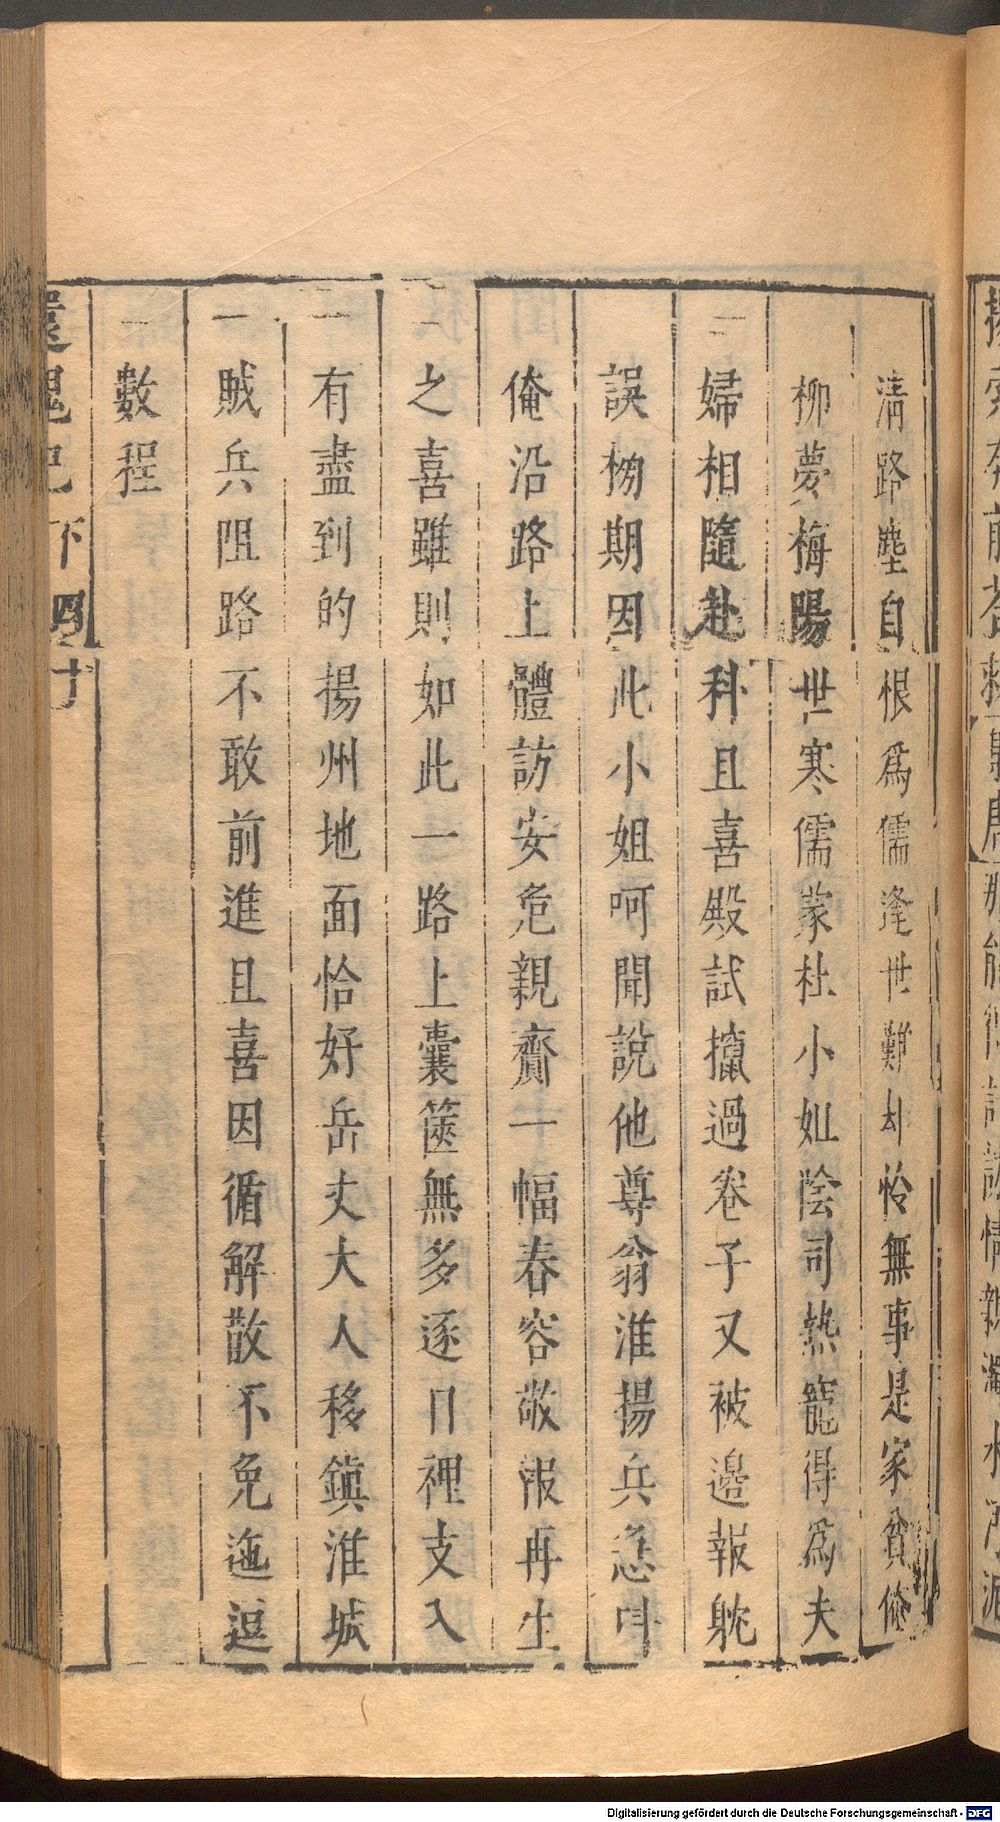 清路塵自恨爲儒逢世難却怜無事是家貧俺
柳夢梅陽世寒儒蒙杜小姐陰司熱寵得爲夫
婦相隨赴科且喜殿試攛過卷子又被邊報躭
誤榜期因此小姐呵聞說他尊翁淮揚兵急叫
俺沿路上體訪安危親賫一幅春容敬報再生
之喜雖則如此一路上囊篋無多逐日裡支入
有盡到的揚州地面恰好岳丈大人移鎮淮城
賊兵阻路不敢前進且喜因循解散不免迤逗
數程
還魂記下四十
Digitalisierung gefördert durch die Deutsche Forschungsgemeinschaft - DFG